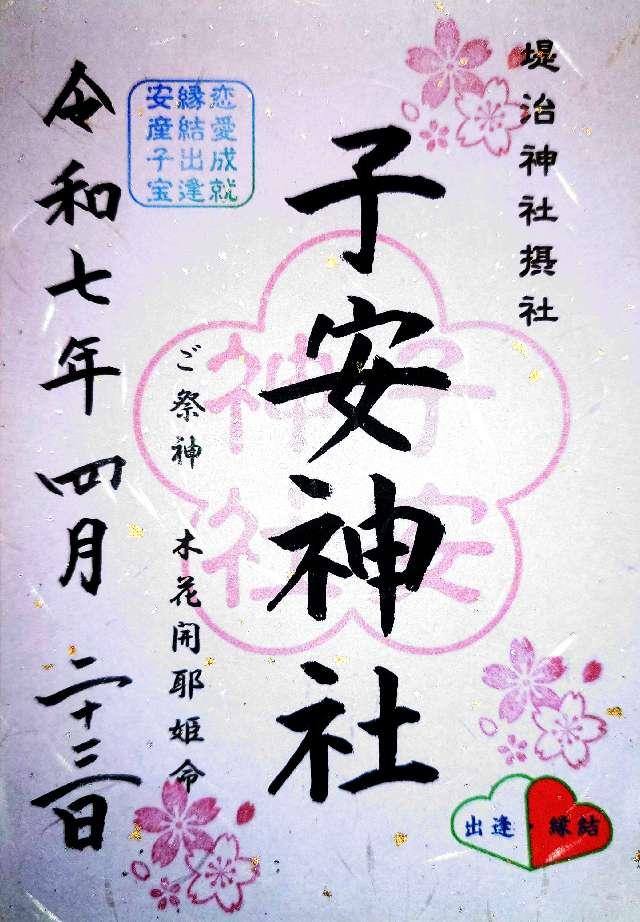 堤治神社摂社
子安神社
子安
神社
ご祭神 木花開耶姫命
恋愛成就
縁結出逢
安産子宝
令和七年四月二十三日
出逢・縁結